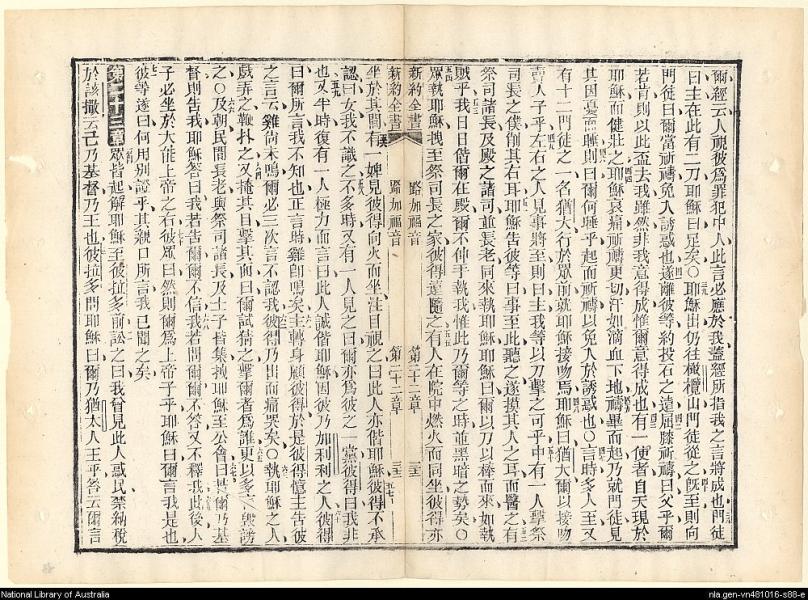 爾經云人視彼爲罪犯中人此言必應於我蓋經所指我之言將成也門徒
曰主在此有二刀耶穌曰足矣○耶穌出仍往橄欖山門徒從之旣至則向
門徒曰爾當祈禱免入誘惑也遂離彼等約投石之遠屈膝祈禱曰父乎爾
若肯則以此盃去我雖然非我意得成惟爾意得成也有一使者自天現於
耶穌而健壯之耶穌哀痛祈禱更切汗如滴血下地禱畢而起乃就門徒見
其因憂而睡則曰爾何睡乎起而祈禱以免入於誘惑也○言時多人至又
有十二門徒之一名猶大行於眾前就耶穌接吻焉耶穌曰猶大爾以接吻
賣人子乎左右之人見事將至則曰主我等以刀擊之可乎中有一人擊祭
司長之僕削其右耳耶穌告彼等曰事至此聽之遂摸其人之耳而醫之有
祭司諸長及殿之諸司並長老同來執耶穌耶穌曰爾以刀以棒而來如執
賊乎我日日偕爾在殿爾不伸手執我惟此乃爾等之時並黑暗之勢矣○
眾執耶穌拽至祭司長之家彼得遠隨之有人在院中燃火而同坐彼得亦
新約全書 路加福音 第二十二章
新約全書 路加福音 第二十二章
坐於其間有一婢見彼得向火而坐注目視之曰此人亦偕耶穌彼得不承
認曰女我不識之不多時又有一人見之曰爾亦爲彼之一黨彼得曰我非
也又半時復有一人極力而言曰此人誠偕耶穌因彼乃加利利之人彼得
曰爾所言我不知也正言時雞卽鳴矣主轉身顧彼得於是彼得憶主告彼
之言云雞尙未鳴爾必三次言不認我彼得乃出而痛哭矣○執耶穌之人
戲弄之鞭扑之又掩其目擊其面曰爾試猜之擊爾者爲誰更以多言毀謗
之○及朝民間長老與祭司諸長及士子皆集拽耶穌至公會曰基爾乃基
督則告我耶穌答曰我若告爾爾不信我若問爾爾不答又不釋我此後人
子必坐於大能上帝之右彼眾曰然則爾爲上帝子乎耶穌曰爾言我是也
彼等遂曰何用別證乎其親口所言我已聞之矣
第二十三章眾皆起解耶穌至彼拉多前訟之曰我曾見此人惑民禁納稅
於該撒云己乃基督乃王也彼拉多問耶穌曰爾乃猶太人王乎答云爾言
National Library of Australia
nla.gen-vn481016-s88-e